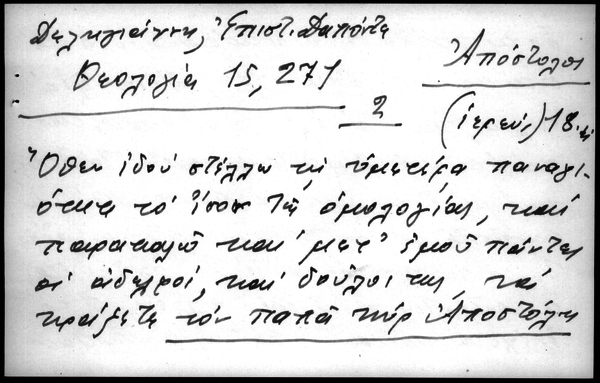 Δεληγιάννη, Ἐπιστ. Δαπόντε
Θεολογία 15, 271
Ἀπόστολοι
2
(ἱερεύς) 18
Ὅθεν ἰδού στέλλω τῇ ὑμετέρᾳ παναγι-
ότητα τό ἴσον τῆς ὁμολογίας, καί
παρακαλῶ καί μετ' ἐμοῦ πάντες
οἱ ἀδελφοί, καί δοῦλοι της, νά
κράξετε τόν παπᾶ κύρ Ἀποστόλη